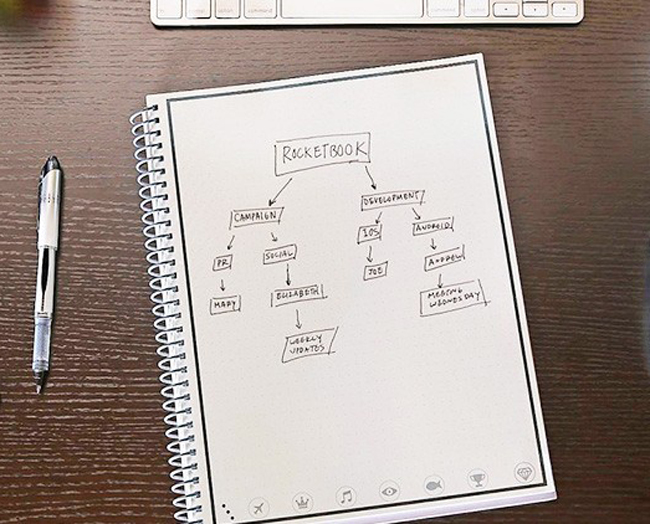 ROCKETBOOK
CAMPAIGN
DEVELOPMENT
PR
SOCIAL
IOS
ANDROID
MARY
ELIZABETH
JOE
ANDREW
WEEKLY
UPDATES
MEETING
WEDNESDAY